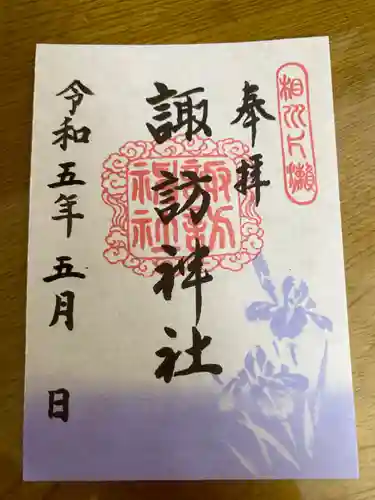 相州片瀬
奉拝
諏訪神社
諏訪神社
令和五年五月 日